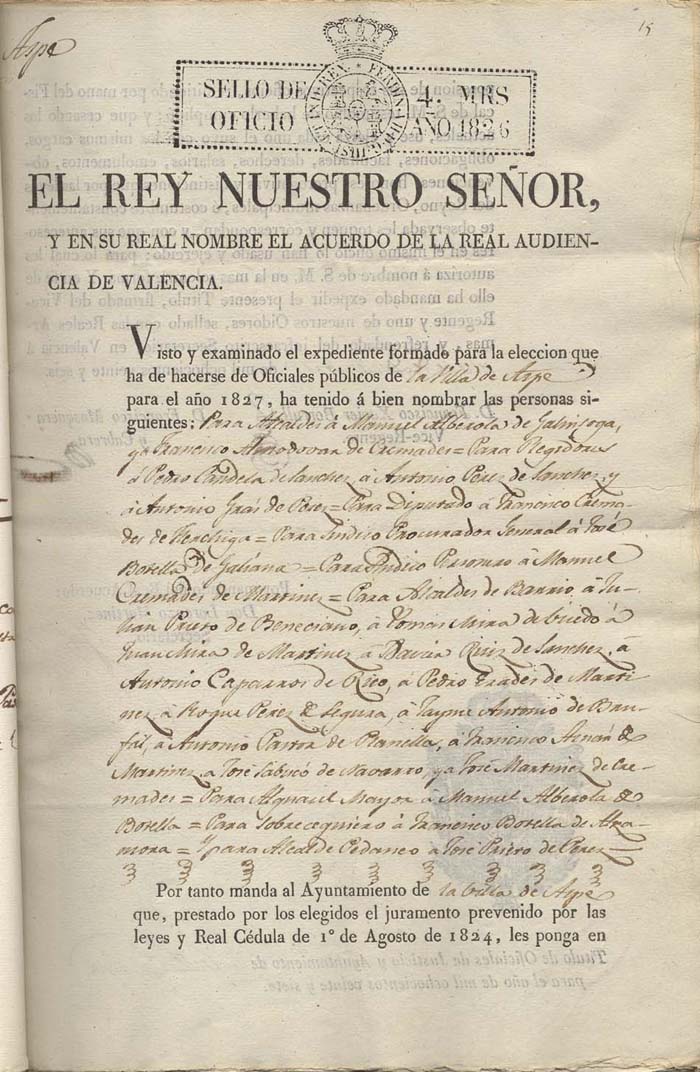 Aspe
15
SELLO DE
OFICIO
4. MRS
AÑO 1826
EL REY NUESTRO SEÑOR,
Y EN SU REAL NOMBRE EL ACUERDO DE LA REAL AUDIEN-
CIA DE VALENCIA.
Visto y examinado el expediente formado para la eleccion que
ha de hacerse de Oficiales públicos de la Villa de Aspe
para el año 1827, ha tenido á bien nombrar las personas si-
guientes: Para Alcaldes á Manuel Alberola de Galinsoga,
y á Francisco Almodovar de Cremades = Para Regidores
á Pedro Candela de Sanchez, á Antonio Perez de Sanchez, y
á Antonio Grás de Perez = Para Diputado á Francisco Crema-
des de = Para Sindico Procurador General á José
Botella de Galiana = Para Sindico Personero á Manuel
Cremades de Martinez = Para Alcaldes de Barrio, á Ju-
lián Prieto de á Tomas Mira de á
Juan Mira de Martinez, á Ruiz de Sanchez, á
Antonio Caparros de Rico, á Pedro de Marti-
nez, á Roque Perez de Segura, á Jayme Antonio de
á Antonio Pastor de Planelles, á Francisco de
Martinez, á José Sabucó de Navarro, y á José Martinez de Cre-
mades = Para Alguacil Mayor á Manuel Alberola de
Botella = Para Sobrecequiero á Francisco Botella de
= Y para Alcalde Pedaneo á José Prieto de Perez
Por tanto manda al Ayuntamiento de la Villa de Aspe
que, prestado por los elegidos el juramento prevenido por las
leyes y Real Cédula de 1º de Agosto de 1824, les ponga en